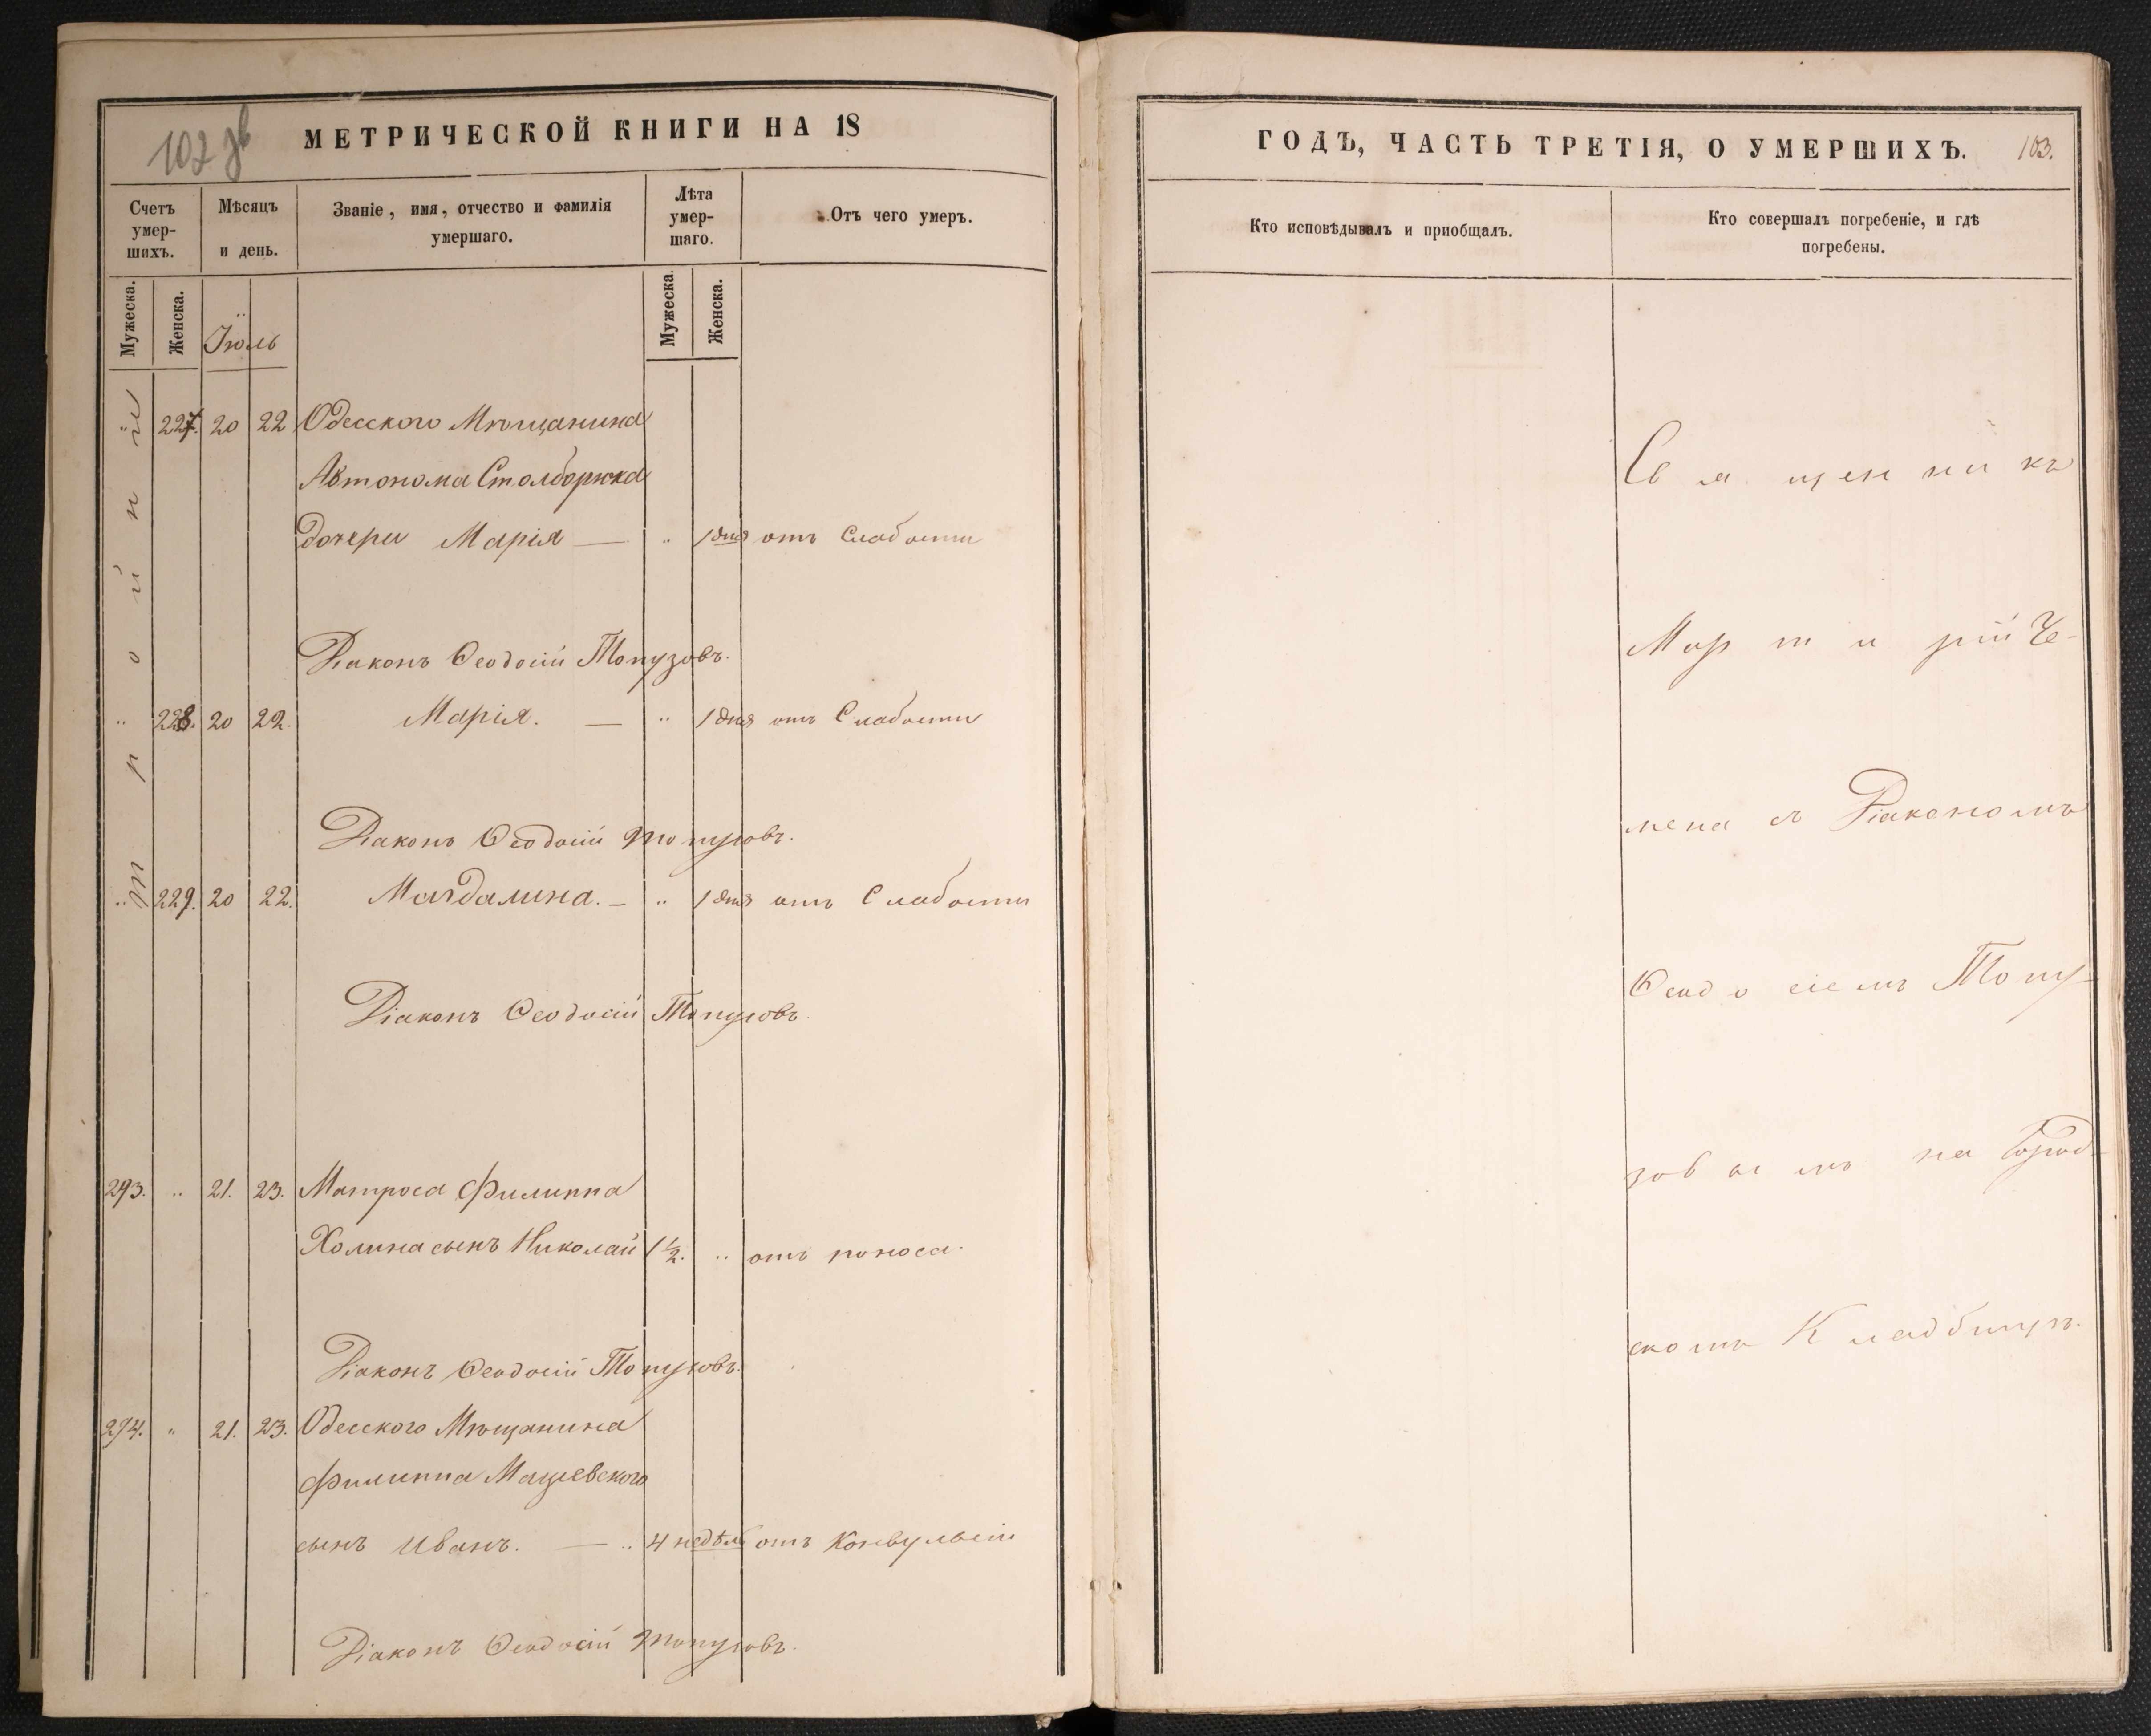 102 об
МЕТРИЧЕСКОЙ КНИГИ НА 18
Счетъ умер-шихъ.
Мѣсяцъ и день.
Званіе, имя, отчество и фамилія умершаго.
Лѣта умер-шаго.
Отъ чего умеръ.
Мужеска.
Женска.
Іюль
Мужеска.
Женска.
тройнии
227. 20 22 Одесского Мѣщанина
Автонома Столборюка
дочери Марія — „ 1 дня отъ Слабости
Діаконъ Ѳеодосій Топузовъ.
„ 228. 20 22. Марія. — „ 1 дня отъ Слабости
Діаконъ Ѳеодосій Топузовъ.
„ 229. 20 22. Магдалина. — „ 1 дня отъ Слабости
Діаконъ Ѳеодосій Топузовъ.
293. „ 21. 23. Матроса Филиппа
Холина сынъ Николай 1 1/2. „ отъ поноса.
Діаконъ Ѳеодосій Топузовъ.
294. „ 21. 23. Одесского Мѣщанина
Филиппа Мацевского
сынъ Иванъ. — „ 4 недѣль отъ Конвульсій
Діаконъ Ѳеодосій Топузовъ.
ГОДЪ, ЧАСТЬ ТРЕТІЯ, О УМЕРШИХЪ. 103.
Кто исповѣдывалъ и приобщалъ.
Кто совершалъ погребеніе, и гдѣ погребены.
Священникъ
Мартирій Че-
мена съ Діакономъ
Ѳеодосіемъ Топу-
зовымъ на Город-
скомъ Кладбищѣ.